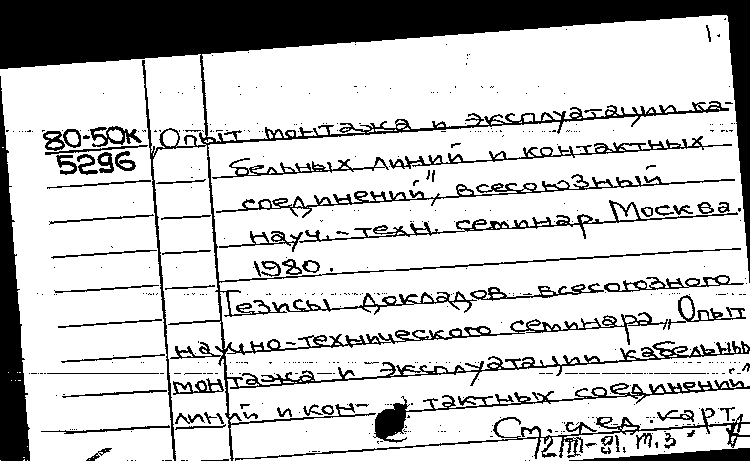 1.
80-50к
5296
„Опыт монтажа и эксплуатации ка-
бельных линий и контактных
соединений", всесоюзный
науч.-техн. семинар. Москва.
1980.
Тезисы докладов всесоюзного
научно-технического семинара „Опыт
монтажа и эксплуатации кабельны
линий и кон- тактных соединений"
См. след. карт.
12/III-81. т. 3